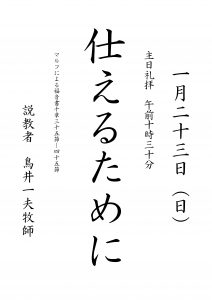 一月二十三日(日)
主日礼拝 午前十時三十分
仕えるために
マルコによる福音書十章三十五節ー四十五節
説教者 鳥井一夫牧師